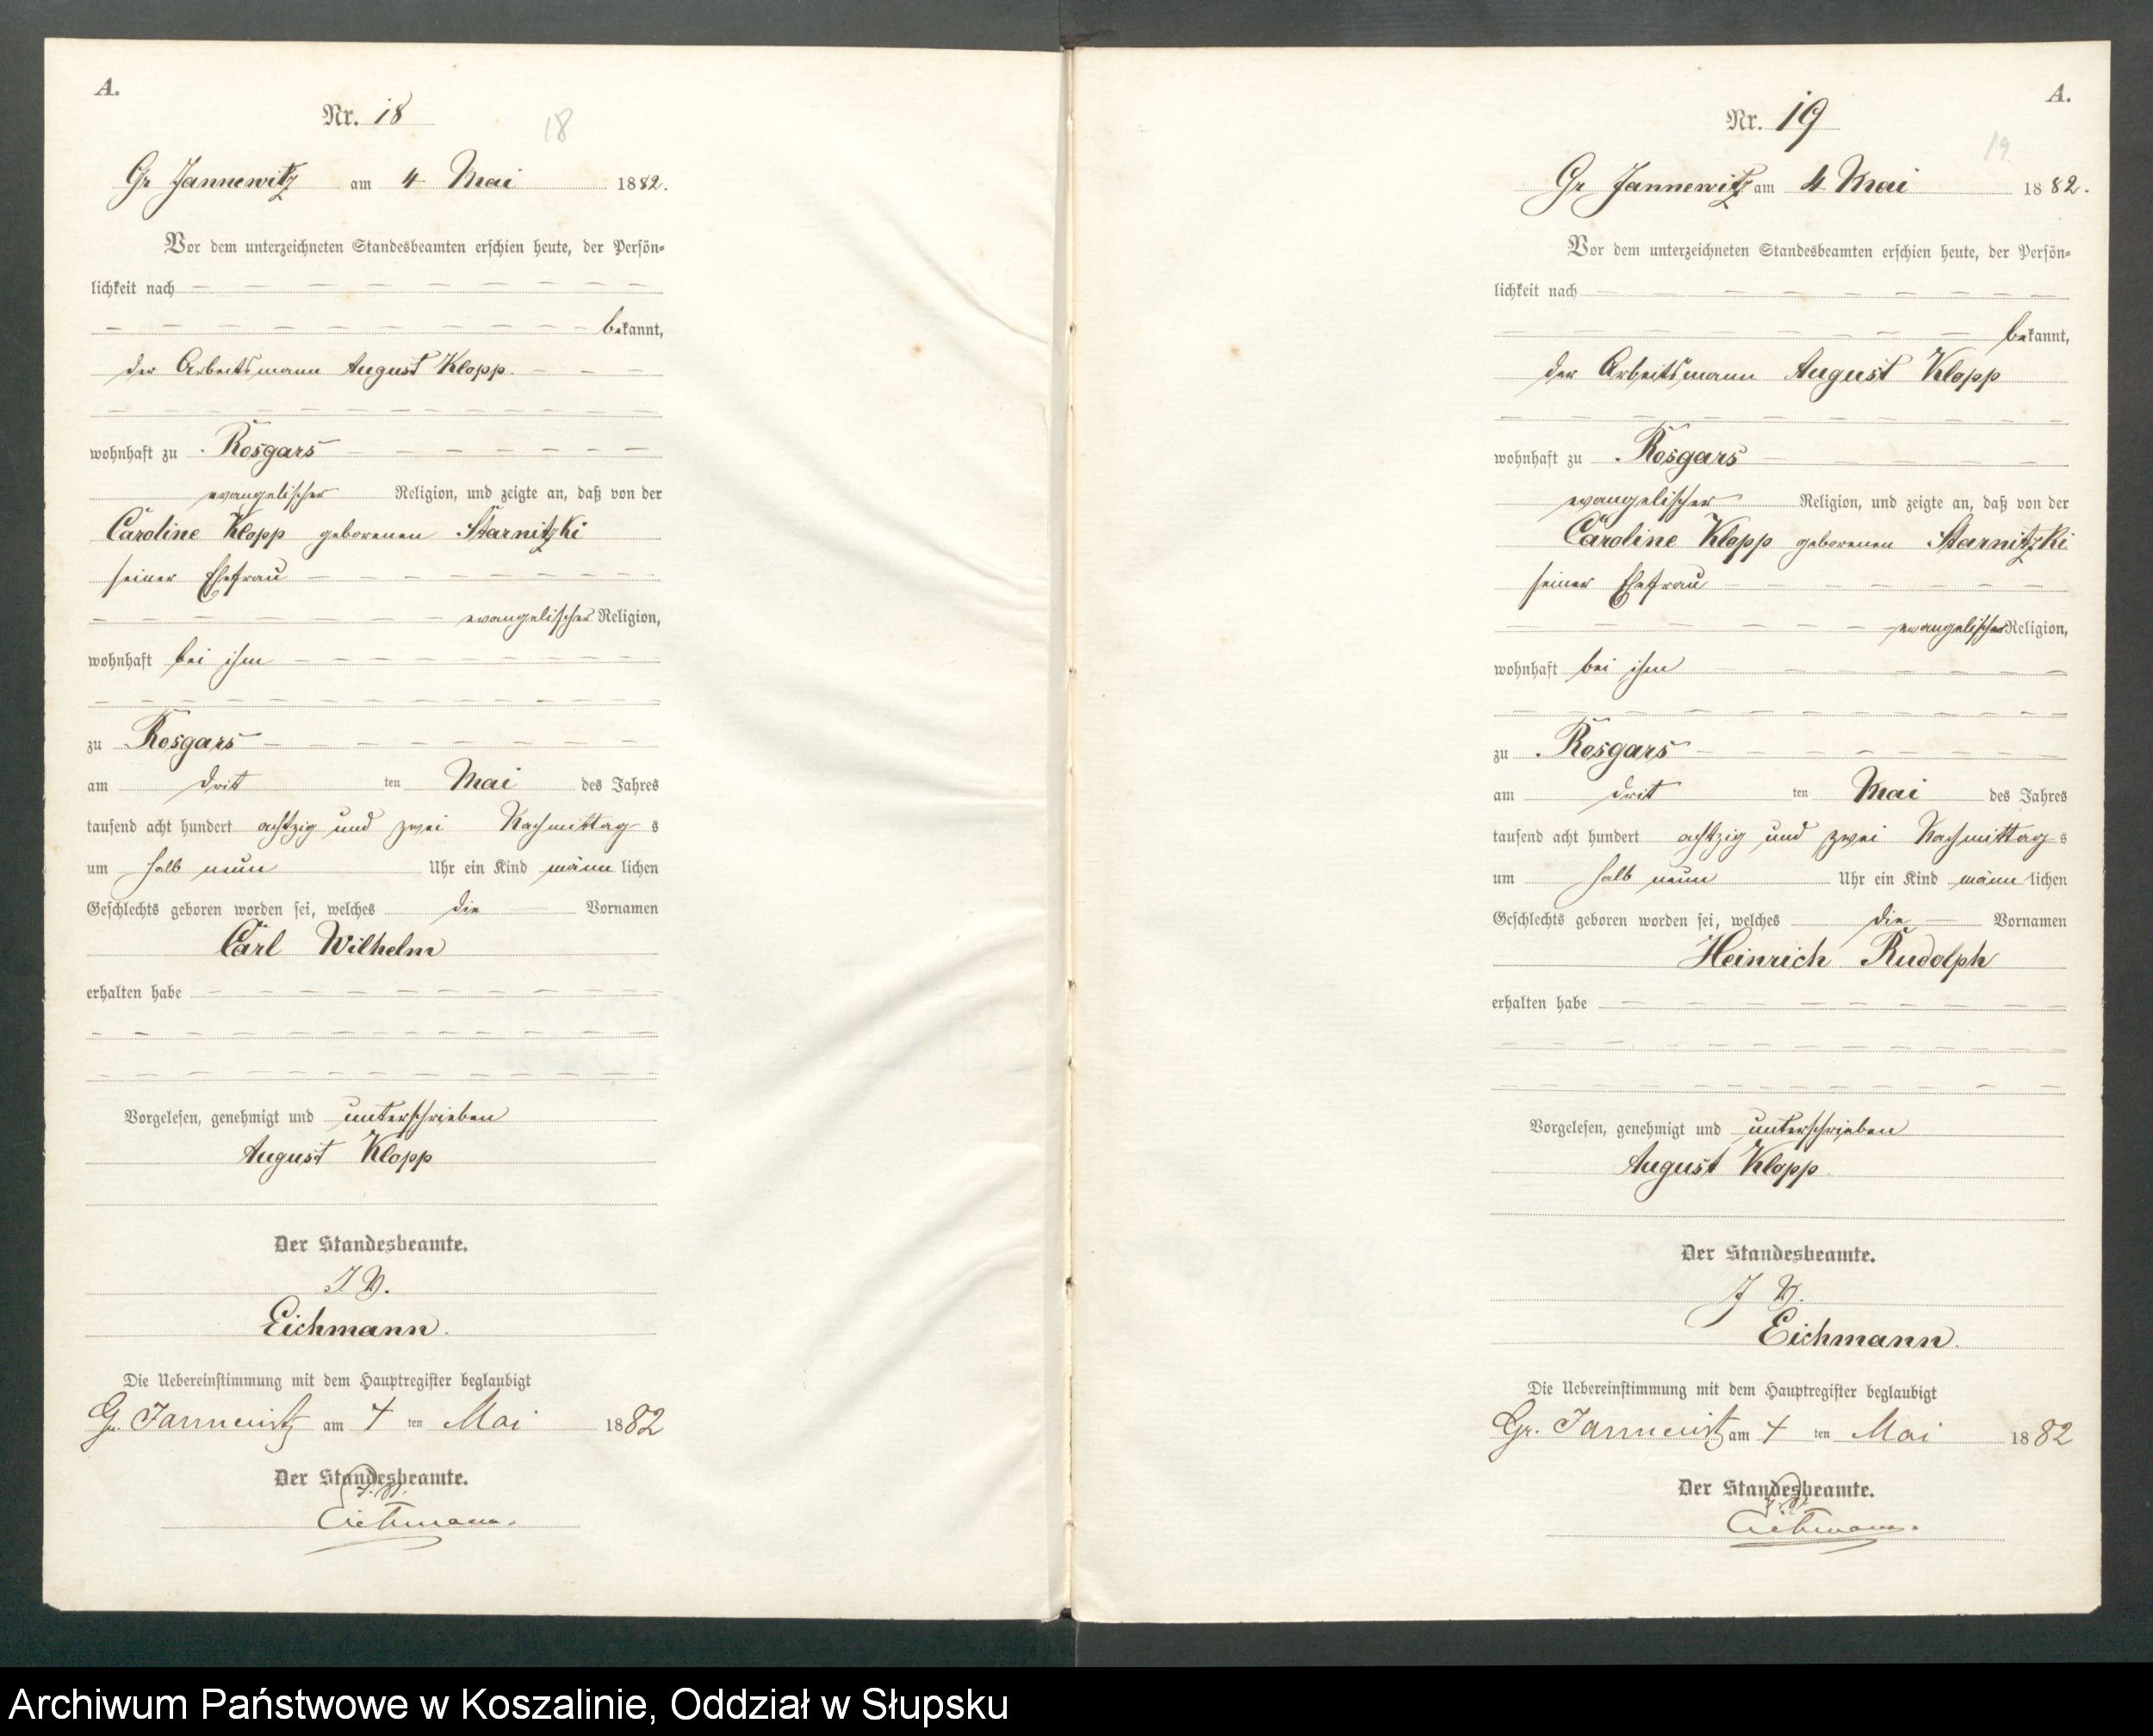 A.
Nr. 18
18
Gr Jannewitz am 4 Mai 1882.
Vor dem unterzeichneten Standesbeamten erschien heute, der Persön-
lichkeit nach
bekannt,
der Arbeitsmann August Klopp.
wohnhaft zu Rosgars
evangelischer Religion, und zeigte an, daß von der
Caroline Klopp geborenen Starnitzki
seiner Ehefrau
evangelischer Religion,
wohnhaft bei ihm
zu Rosgars
am dritten Mai des Jahres
tausend acht hundert achtzig und zwei Nachmittags
um halb neun Uhr ein Kind männlichen
Geschlechts geboren worden sei, welches die Vornamen
Carl Wilhelm
erhalten habe
Vorgelesen, genehmigt und unterschrieben
August Klopp
Der Standesbeamte.
J V.
Eichmann.
Die Uebereinstimmung mit dem Hauptregister beglaubigt
Gr. Jannewitz am 4 ten Mai 1882
Der Standesbeamte.
J. V.
Eichmann.
A.
Nr. 19
19
Gr Jannewitz am 4 Mai 1882.
Vor dem unterzeichneten Standesbeamten erschien heute, der Persön-
lichkeit nach
bekannt,
der Arbeitsmann August Klopp
wohnhaft zu Rosgars
evangelischer Religion, und zeigte an, daß von der
Caroline Klopp geborenen Starnitzki
seiner Ehefrau
evangelischer Religion,
wohnhaft bei ihm
zu Rosgars
am dritten Mai des Jahres
tausend acht hundert achtzig und zwei Nachmittags
um halb neun Uhr ein Kind männlichen
Geschlechts geboren worden sei, welches die Vornamen
Heinrich Rudolph
erhalten habe
Vorgelesen, genehmigt und unterschrieben
August Klopp.
Der Standesbeamte.
J V.
Eichmann.
Die Uebereinstimmung mit dem Hauptregister beglaubigt
Gr. Jannewitz am 4 ten Mai 1882
Der Standesbeamte.
J. V.
Eichmann.
Archiwum Państwowe w Koszalinie, Oddział w Słupsku